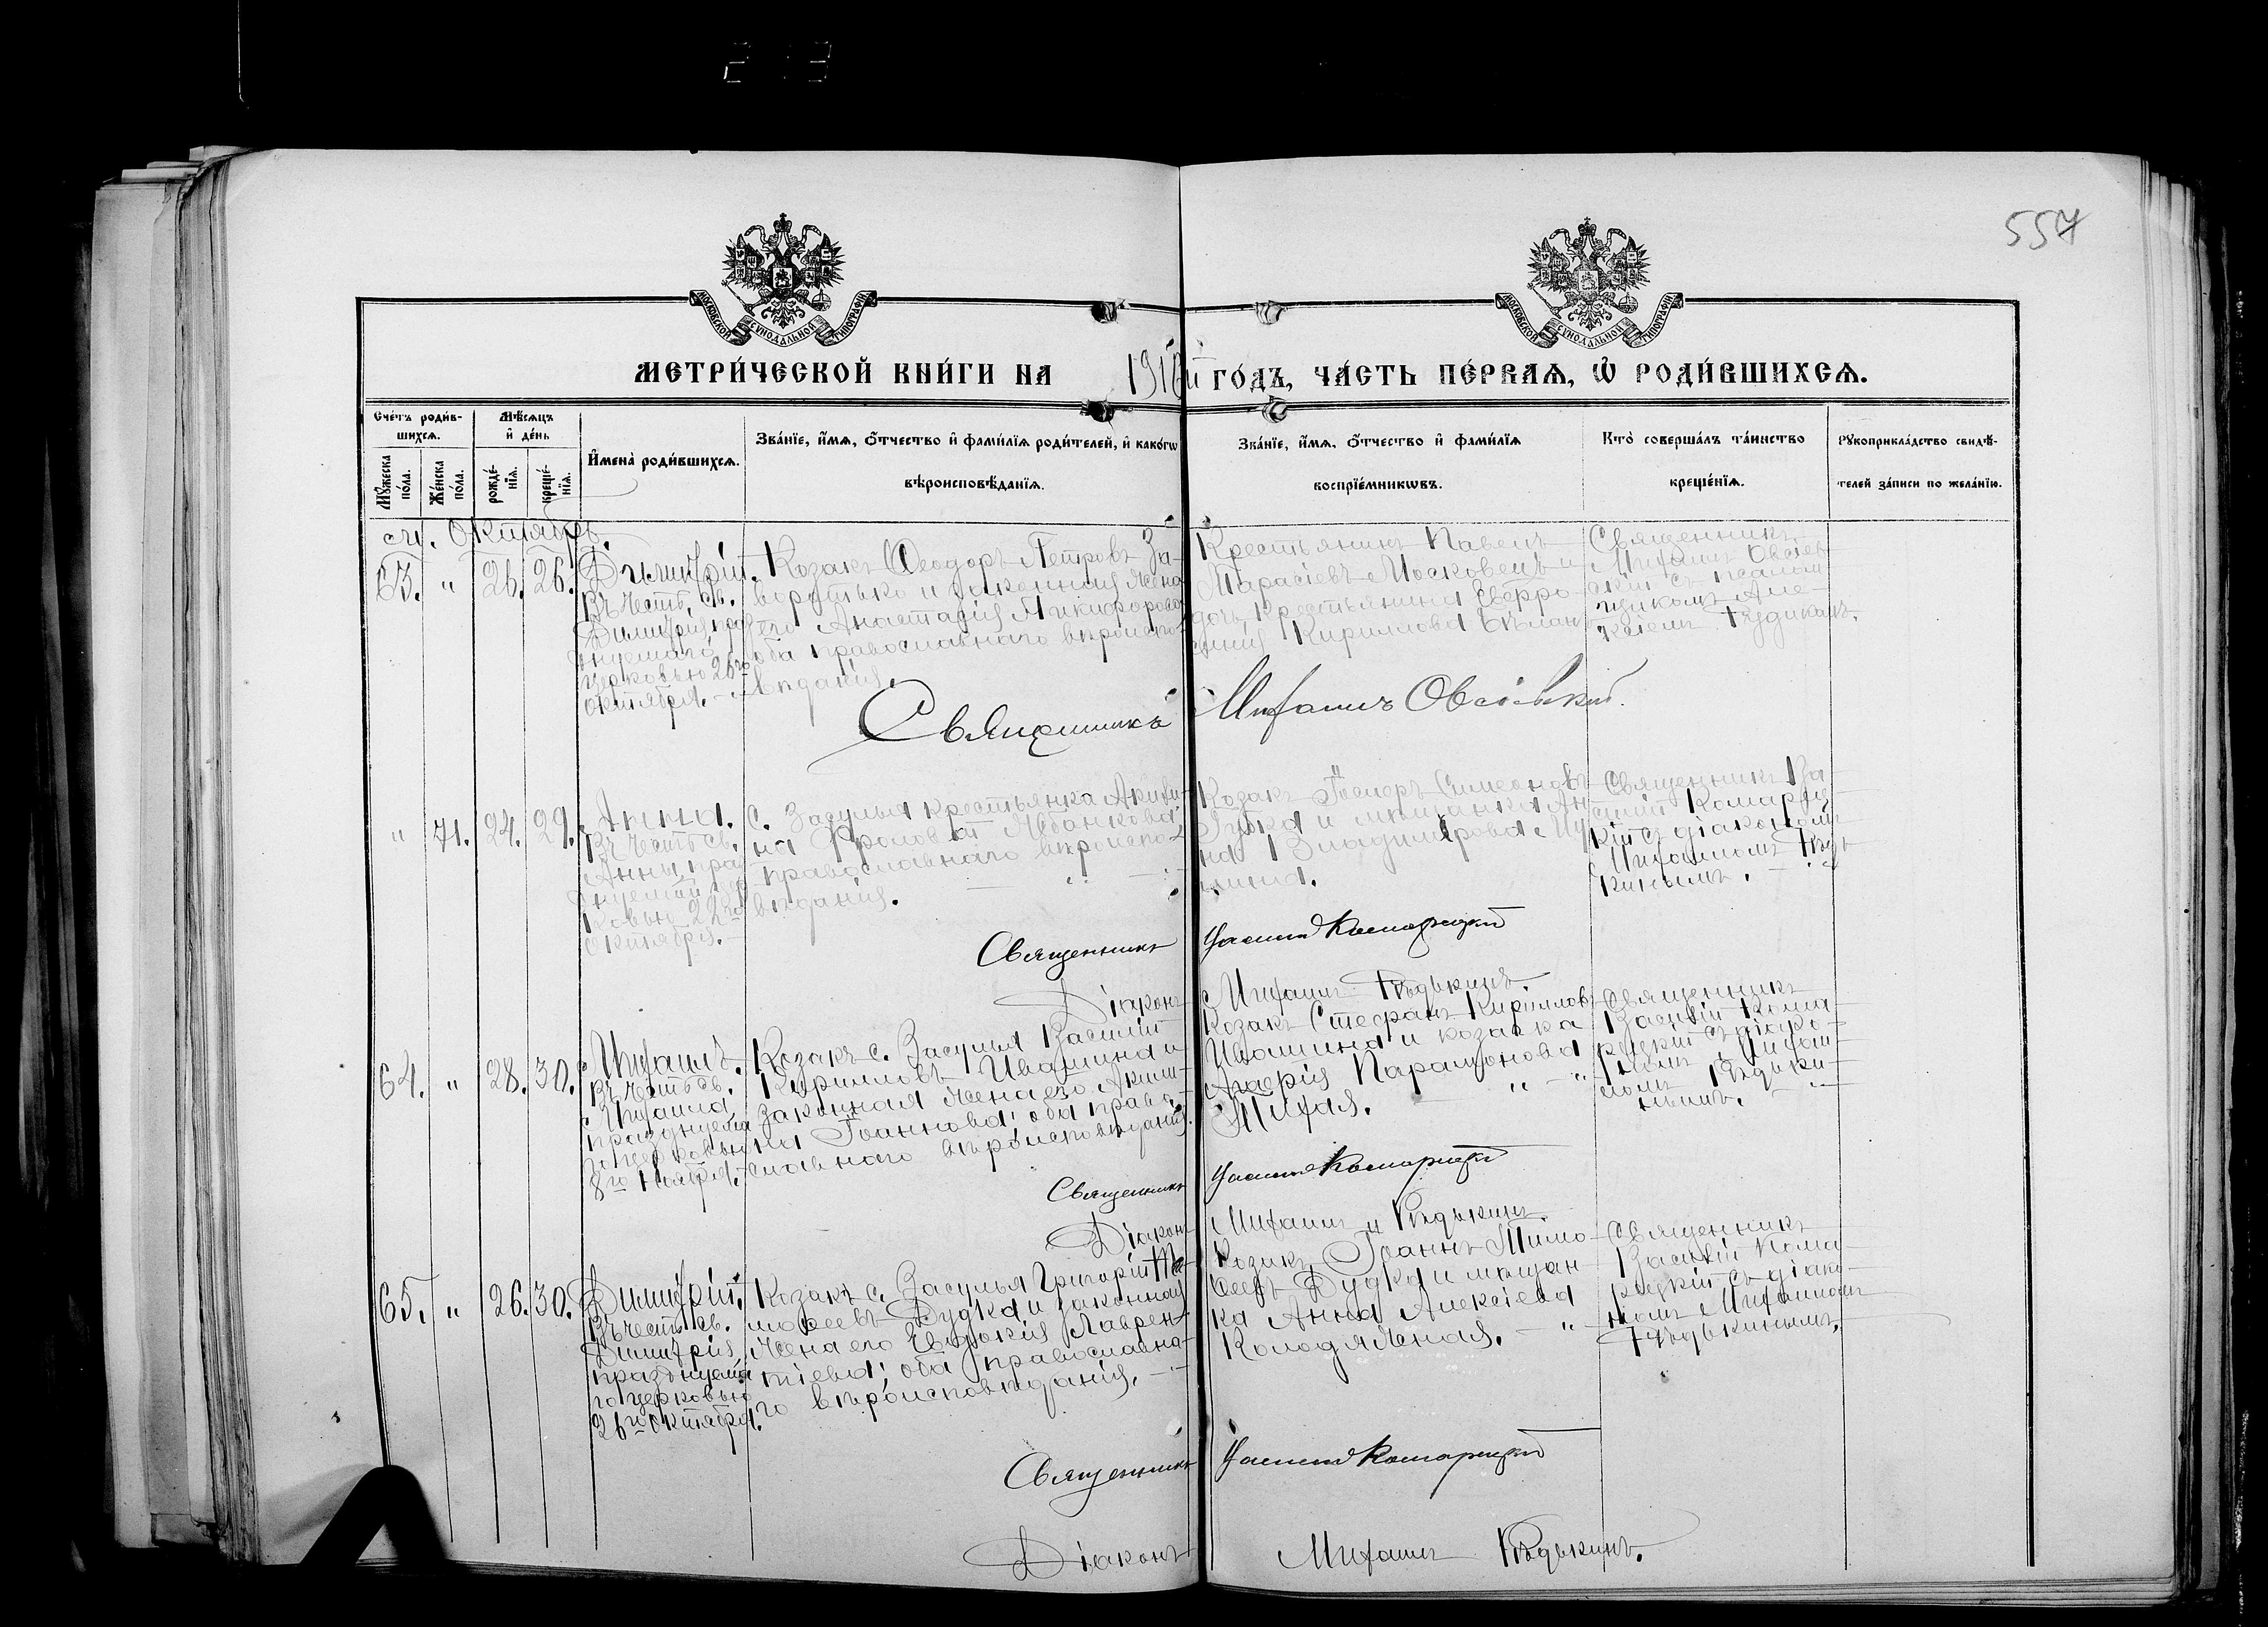 213
557
МОСКОВСКОЙ СУНОДАЛЬНОЙ ТИПОГРАФІИ
МОСКОВСКОЙ СУНОДАЛЬНОЙ ТИПОГРАФІИ
МЕТРИ́ЧЕСКОЙ КНИ́ГИ НА 191 й ГО́ДЪ, ЧА́СТЬ ПЕ́РВАѦ, Ѡ҆ РОДИ́ВШИХСѦ.
Сче́тъ роди́в-
шихсѧ.
Мꙋ́жеска по́ла.
Же́нска по́ла.
Мѣ́сѧцъ
и҆ де́нь
рожде́-
нїѧ.
креще́-
нїѧ.
И҆мена̀ роди́вшихсѧ.
Зва́нїе, и҆́мѧ, ѻ҆́тчество и҆ фами́лїѧ роди́телей, и҆ како́гѡ
вѣроисповѣ́данїѧ.
Зва́нїе, и҆́мѧ, ѻ҆́тчество и҆ фами́лїѧ
воспрїе́мникѡвъ.
Кто̀ соверша́лъ та́инство
креще́нїѧ.
Рꙋкоприкла́дство свидѣ́-
телей за́писи по жела́нїю.
Октябрь.
63. " 26. 26.
Димитрій.
Въ честь св.
Димитрія, праз
днуемаго
церковью 26го
октября.
Козакъ Ѳеодоръ Петровъ За-
воротько и законная жена
его Анастасія Никифорова
оба православнаго вѣроиспо-
вѣданія.
Крестьянинъ Павелъ
Тарасіевъ Московецъ и
дочь крестьянина Евфро-
синія Кириллова Билан
Священникъ
Михаилъ Овсіев-
скій съ псалом
щикомъ Але-
ксіемъ
Священникъ Михаилъ Овсіевскій.
" 71. 24. 29.
Анна.
Въ честь св.
Анны праз
днуемой цер
ковью 22го
октября.
с. Засулья крестьянка Акили-
на Фролова
православнаго вѣроиспо-
вѣданія.
Козакъ Іосифъ Симеоновъ
и мѣщанка Ан
на Владимирова
Священникъ Ва-
силій Комариц-
кій съ діакономъ
Михаиломъ Рѣдь
кинымъ.
Священникъ Василій Комарицкій
Діаконъ Михаилъ Рѣдькинъ.
64. " 28. 30.
Михаилъ.
Въ честь св.
Михаила
празднуема
го церковью
8го Ноября.
Козакъ с. Засулья Василій
Кирилловъ Ивашина и
законная жена его Акили-
на Іоаннова; оба право-
славнаго вѣроисповѣданія.
Козакъ Стефанъ Кирилловъ
Ивашина и козачка
Парамонова
Священникъ
Василій Кома-
рицкій съ діако-
номъ Михаи-
ломъ Рѣдьки-
нымъ.
Священникъ Василій Комарицкій
Діаконъ Михаилъ Рѣдькинъ.
65. " 26. 30.
Димитрій.
Въ честь св.
Димитрія,
празднуема
го церковью
26го октября.
Козакъ с. Засулья Григорій Ти-
моѳеевъ Дудка и законная
жена его Евдокія Лаврен-
тіева; оба православна-
го вѣроисповѣданія.
Козакъ Іоаннъ Тимо-
ѳеевъ Дудка и мѣщан-
ка Анна Алексіева
Колодяжная.
Священникъ
Василій Кома-
рицкій съ діако-
номъ Михаиломъ
Рѣдькинымъ.
Священникъ Василій Комарицкій
Діаконъ Михаилъ Рѣдькинъ.